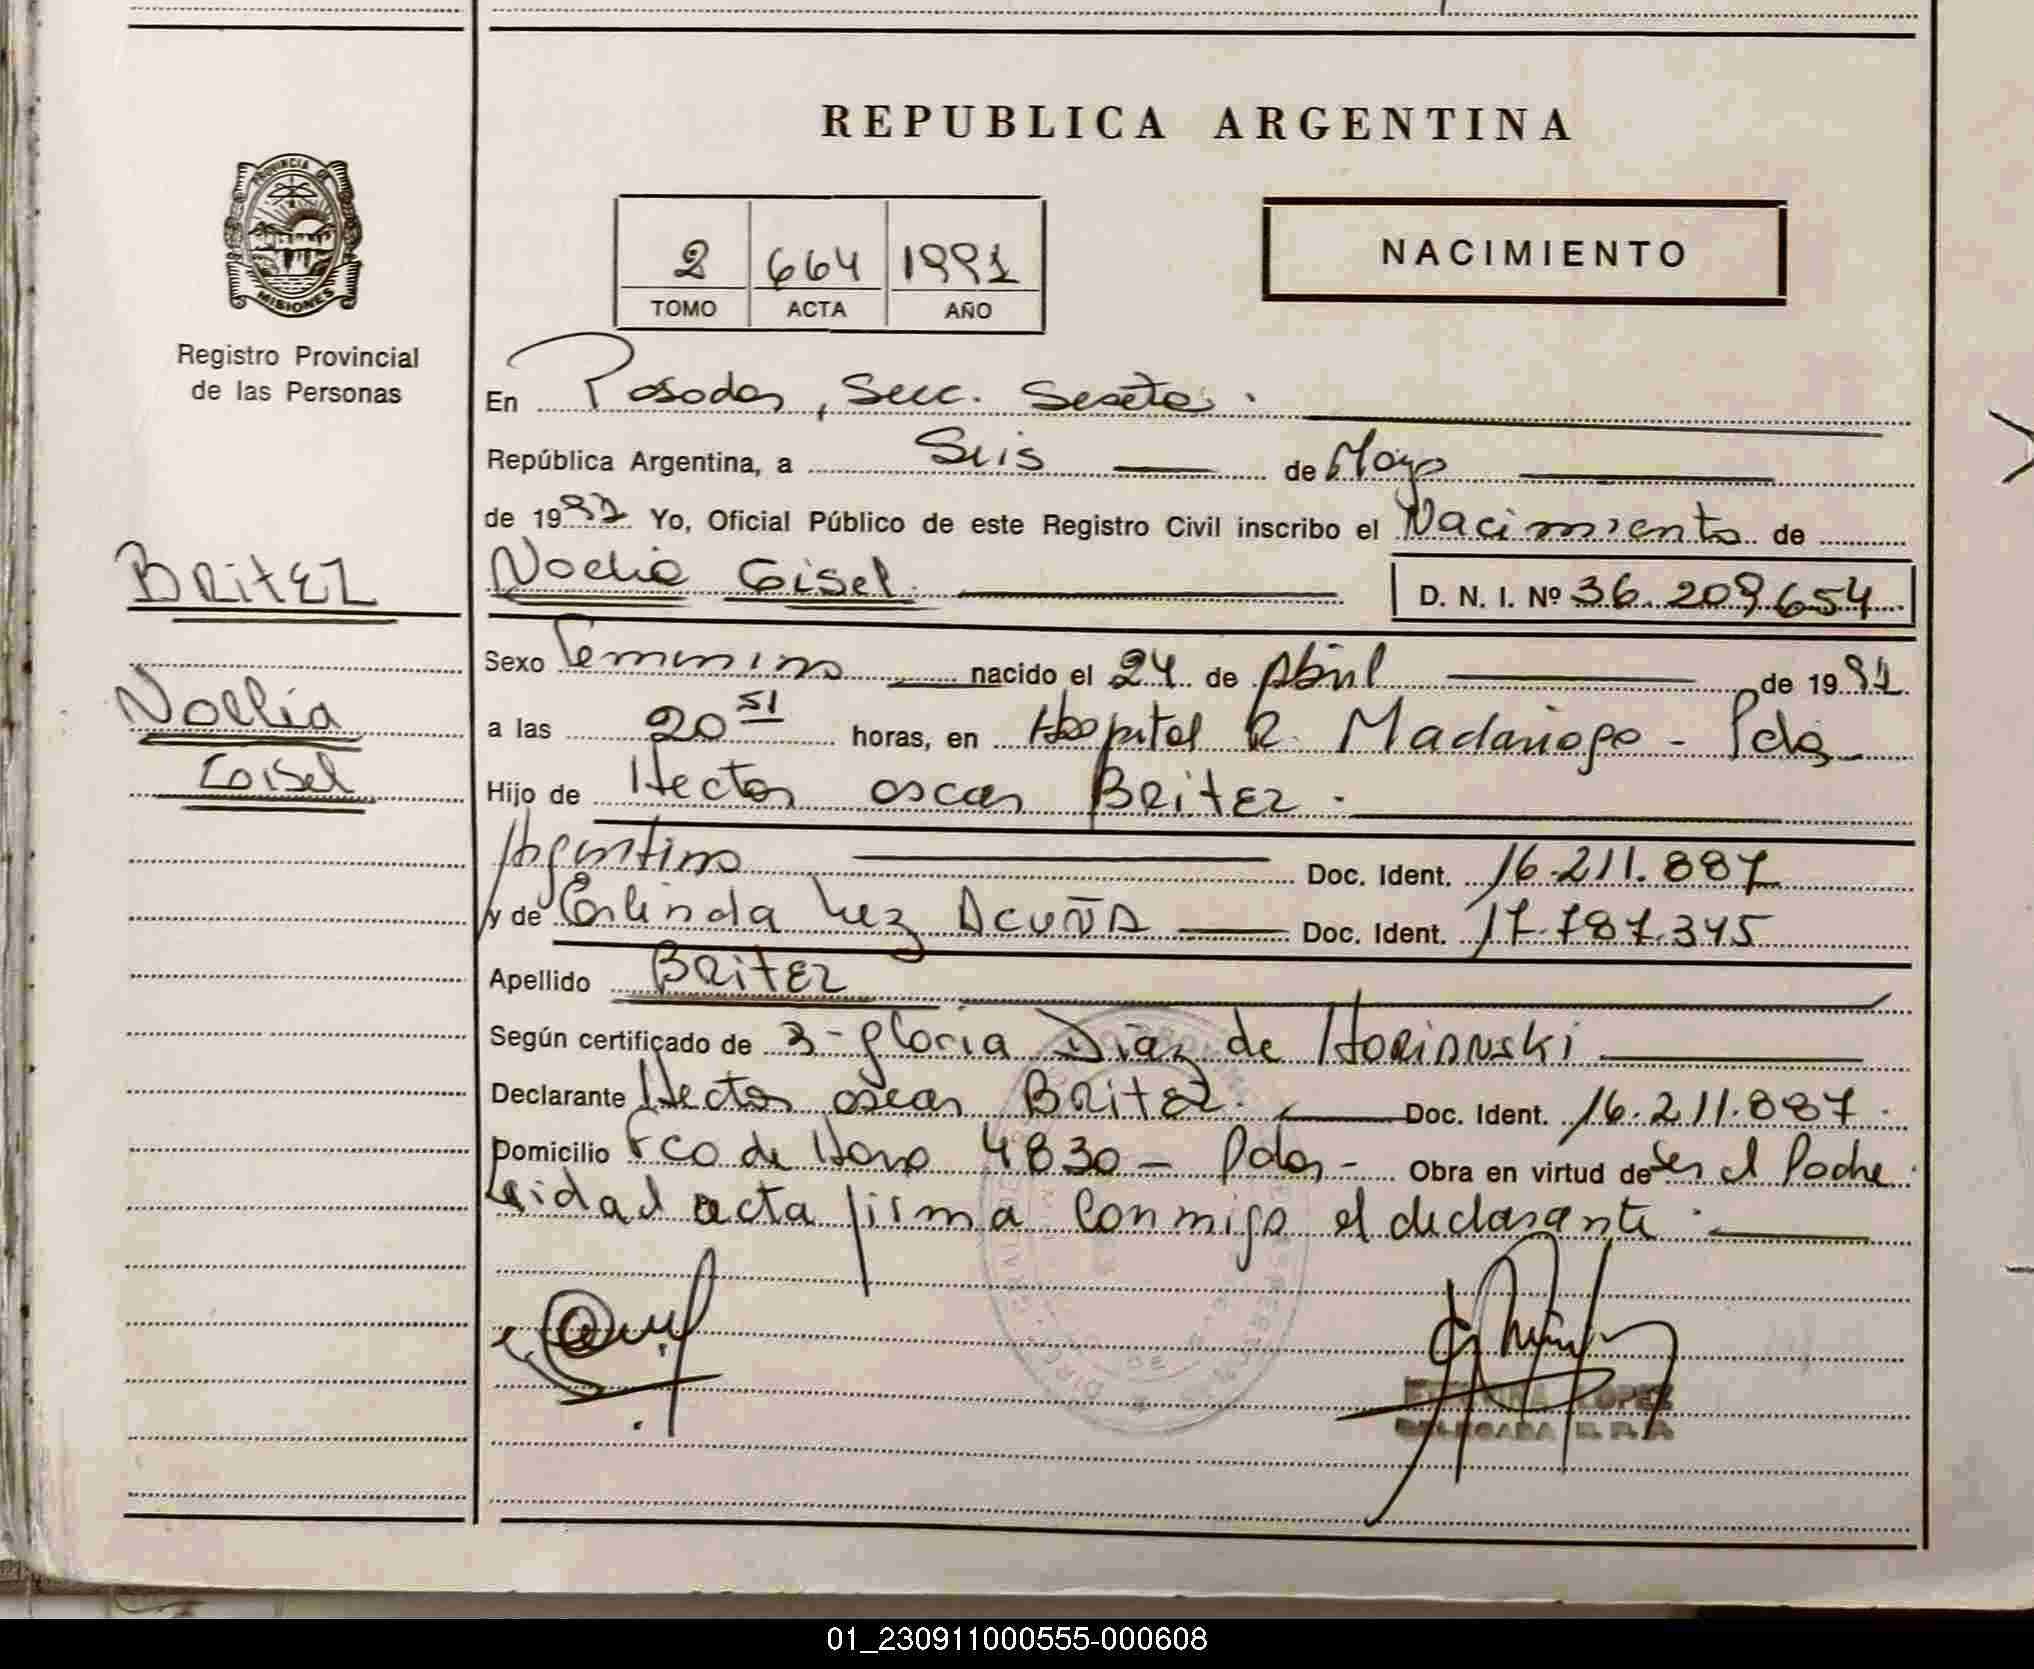 REPUBLICA ARGENTINA
PROVINCIA DE
MISIONES
Registro Provincial
de las Personas
2 664 1991
TOMO ACTA AÑO
NACIMIENTO
En Posadas, Secc. Sexta.
República Argentina, a Seis de Mayo
de 1991 Yo, Oficial Público de este Registro Civil inscribo el Nacimiento de
BRitEZ
Noelia Gisel. D. N. I. Nº 36.209654
Sexo Femenino nacido el 24 de Abril de 1991
Noelia
a las 20 51 horas, en Hospital R. Madariaga - Pdas
Gisel
Hijo de Hector oscar BRitEZ.
Argentino Doc. Ident. 16.211.887
y de Erlinda Luz ACUÑA Doc. Ident. 17.787.345
Apellido BRitEZ
Según certificado de 3-gloria Diaz de HORIANSKI
Declarante Hector oscar BRitEZ. Doc. Ident. 16.211.887.
Domicilio Fco de Haro 4830 - Pdas - Obra en virtud de Ser el Padre.
Leida el acta firma Conmigo el declarante.
LOPEZ
DELEGADA R. P. P.
01_230911000555-000608